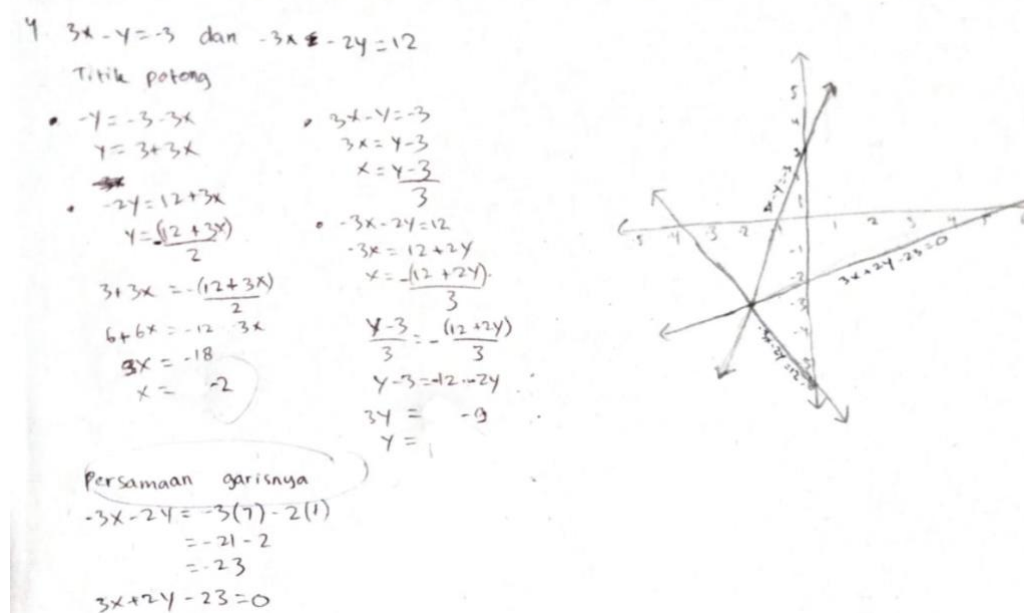 4. 3x - y = -3 dan -3x - 2y = 12
Titik potong
• -y = -3 - 3x
y = 3 + 3x
• -2y = 12 + 3x
y = -(12 + 3x)
2
3 + 3x = -(12 + 3x)
2
6 + 6x = -12 - 3x
9x = -18
x = -2
• 3x - y = -3
3x = y - 3
x = y - 3
3
• -3x - 2y = 12
-3x = 12 + 2y
x = -(12 + 2y)
3
y - 3 = -(12 + 2y)
3 3
y - 3 = -12 - 2y
3y = -9
y =
Persamaan garisnya
-3x - 2y = -3(7) - 2(1)
= -21 - 2
= -23
3x + 2y - 23 = 0
5
4
3
1
-5 -4 -3 -2 -1 1 2 3 4 5 6
-1
-2
-3
-4
3x - y = -3
3x + 2y - 23 = 0
-3x - 2y = 12